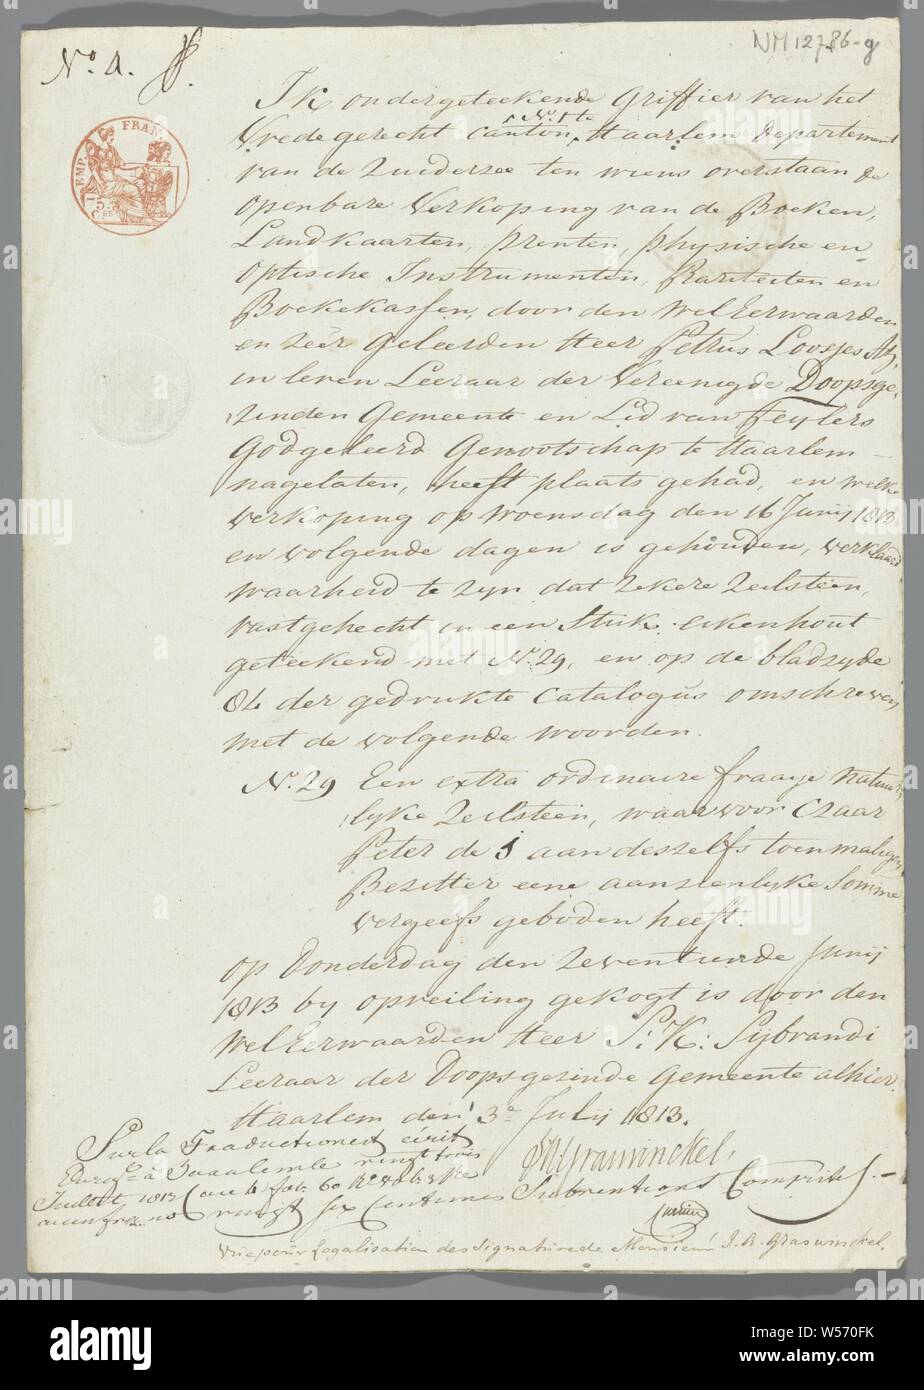 No. A.
NM 12786-g
EMP. FRAN.
75.
Ik ondergeteekende Griffier van het
No. 1
Vredegerecht Canton Haarlem Departement
van de Zuiderzee ten wiens overstaan de
openbare Verkoping van de Boeken,
Landkaarten, prenten, physische en
Optische Instrumenten, Rariteiten en
Boekekassen, door den WelEerwaarden
en zeer Geleerden Heer Petrus Loosjes Az,
in leven Leeraar der Vereenigde Doopsge-
zinden Gemeente en Lid van Teylers
Godgeleerd Genootschap te Haarlem
nagelaten, heeft plaats gehad, en welke
verkoping op Woensdag den 16 Junij 1813
en volgende dagen is gehouden, verklaard
waarheid te zyn dat zekere Zeilsteen,
vastgehecht in een Stuk eikenhout
geteekend met No. 29, en op de bladzyde
84 der gedrukte Catalogus omschreven
met de volgende woorden.
No. 29 Een extra ordinaire fraaye natuur-
lyke Zeilsteen, waarvoor Czaar
Peter de 1 aan deszelfs toenmaligen
Bezitter eene aanzienlyke Somme
vergeefs geboden heeft.
op Donderdag den Zeventiende Junij
1813 by opveiling gekogt is door den
WelEerwaarden Heer S: K: Sybrandi
Leeraar der Doopsgezinde Gemeente alhier.
Haarlem den 3e July 1813.
Graswinckel
Sur la Traduction est écrit
Enregé. à Haarlem le vingt trois
Juillet 1813
vingt six Centimes Subventions Comprises
Vu pour Legalisation de Signature de Monsieur J. R. Graswinckel.
alamy
Image ID: W570FK
www.alamy.com